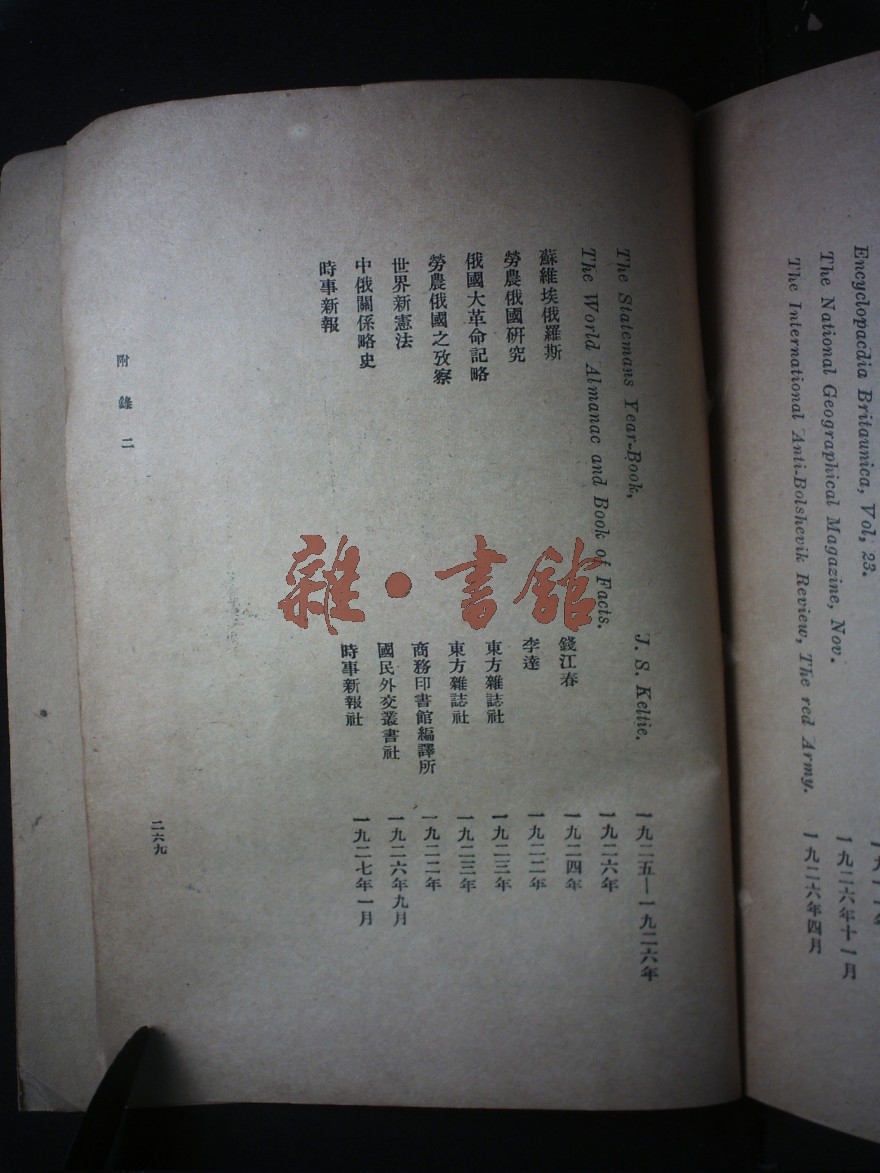 Encyclopaedia Britaunica, Vol, 23.
The National Geographical Magazine, Nov. 一九二六年十一月
The International Anti-Bolshevik Review, The red Army. 一九二六年四月
The Statemans Year-Book, J. S. Keltie. 一九二五—一九二六年
The World Almanac and Book of Facts. 一九二六年
蘇維埃俄羅斯 錢江春 一九二四年
勞農俄國研究 李達 一九二二年
俄國大革命記略 東方雜誌社 一九二三年
勞農俄國之攷察 東方雜誌社 一九二三年
世界新憲法 商務印書館編譯所 一九二二年
中俄關係略史 國民外交叢書社 一九二六年九月
時事新報 時事新報社 一九二七年一月
附錄二
二六九
雜·書館